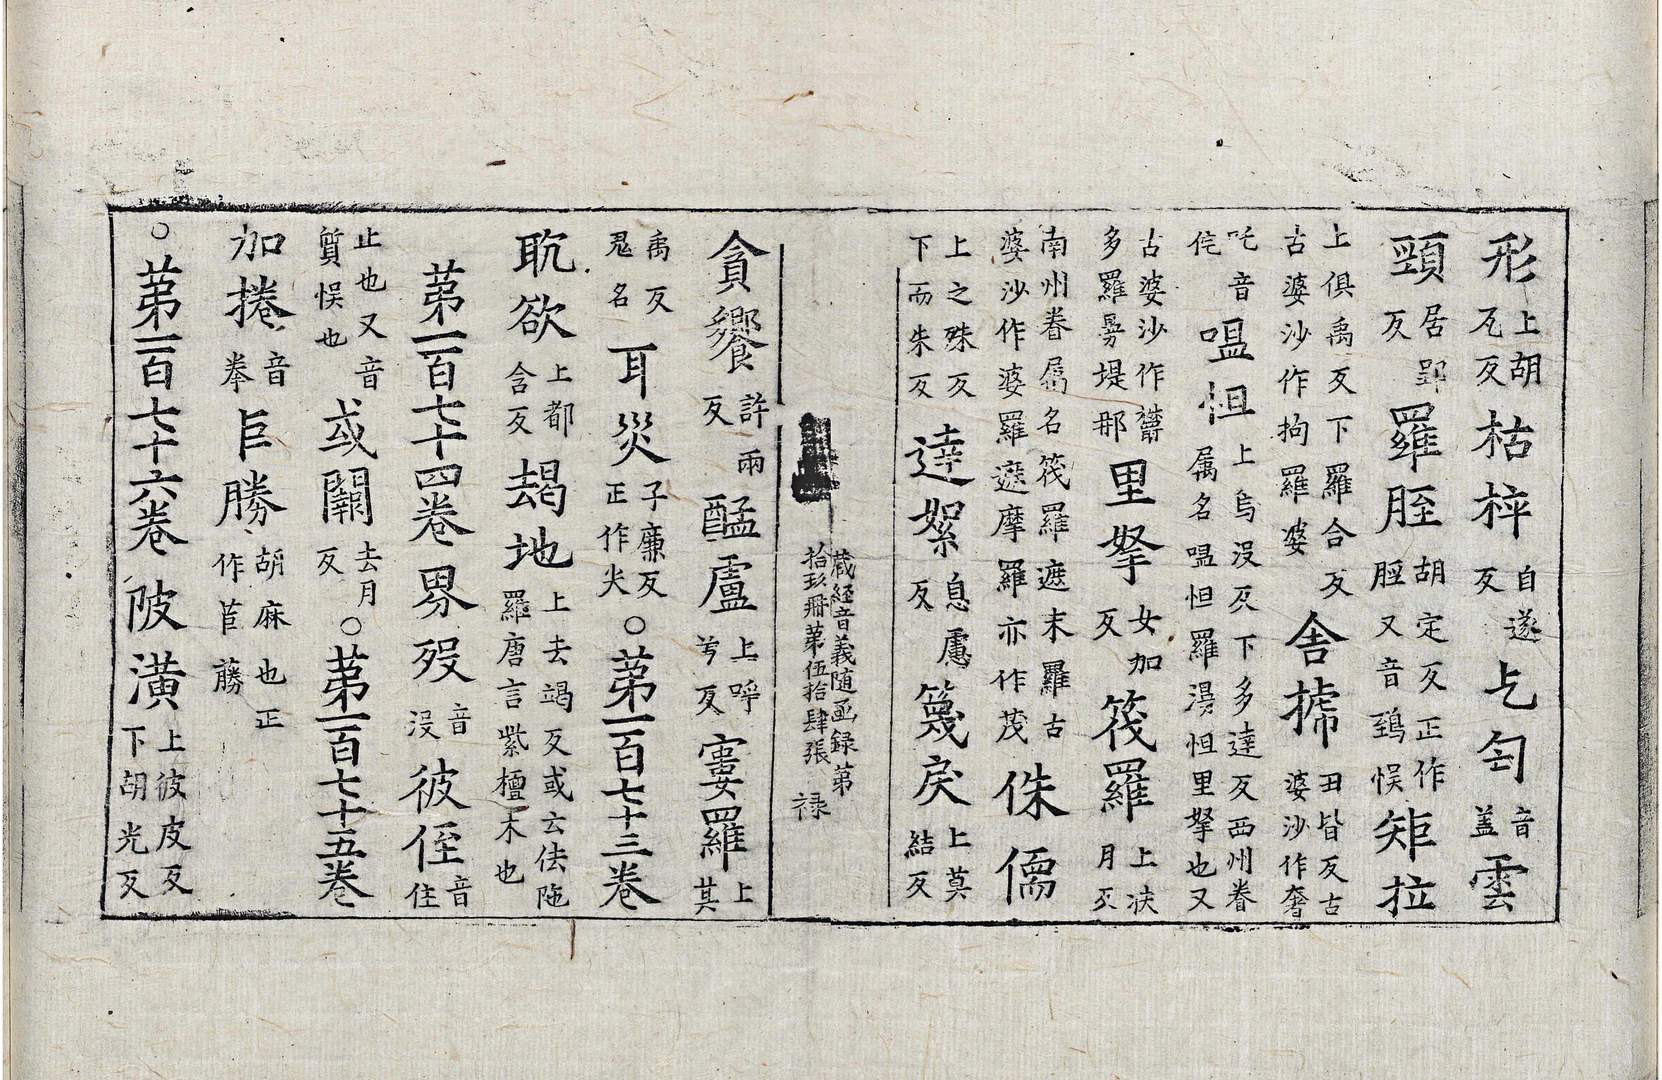 形上胡瓦反枯梓自遂反乞匄音盖雲
頸居郢反羅脛胡定反正作脛又音鵄悮矩拉
上俱禹反下羅合反古婆沙作拘羅婆舍摛丑皆反古婆沙作奢
吒音侘嗢怛上烏没反下多達反西州眷属名嗢怛羅漫怛里拏也又
古婆沙作欝多羅曼堤那里拏女加反筏羅上㳀月反
南州眷属名筏羅遮末羅古婆沙作婆羅遮摩羅亦作茂侏儒
上之殊反下而朱反達絮息慮反篾戾上莫結反
藏経音義随函録第拾玖冊第伍拾肆張 禄
貪饗許兩反醯盧上呼兮反寠羅上其
禹反忍名耳災子廉反正作尖○第一百七十三卷
耽欲上都含反朅地上去竭反或云佉陁羅唐言紫檀木也
第一百七十四卷界歿音没彼侄音住
止也又音質悮也或闕去月反○第一百七十五卷
加捲音拳巨勝胡麻也正作苣藤
○第一百七十六卷陂潢上彼皮反下胡光反